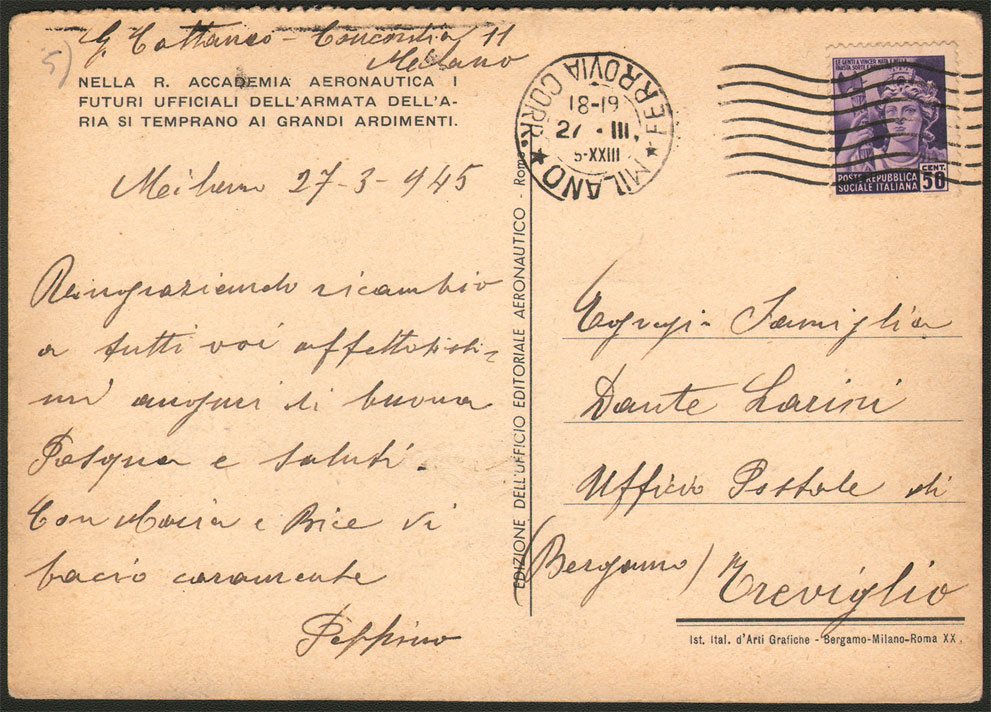 5)
G. Cattaneo - Concordia 11
Milano
NELLA R. ACCADEMIA AERONAUTICA I
FUTURI UFFICIALI DELL'ARMATA DELL'A-
RIA SI TEMPRANO AI GRANDI ARDIMENTI.
Milano 27-3-945
Ringraziando ricambio
a tutti voi affettosissi-
mi auguri di buona
Pasqua e saluti.
Con Maria e Bice vi
bacio caramente
Peppino
EDIZIONE DELL'UFFICIO EDITORIALE AERONAUTICO - Roma
MILANO FERROVIA CORR.
18-19
27 · III.
5-XXIII
LE GENTI A VINCER NATE
FAUSTA SORTE
POSTE REPUBBLICA
SOCIALE ITALIANA
CENT.
50
Egregi Famiglia
Dante Larini
Ufficio Postale di
(Bergamo) Treviglio
Ist. Ital. d'Arti Grafiche - Bergamo-Milano-Roma XX.